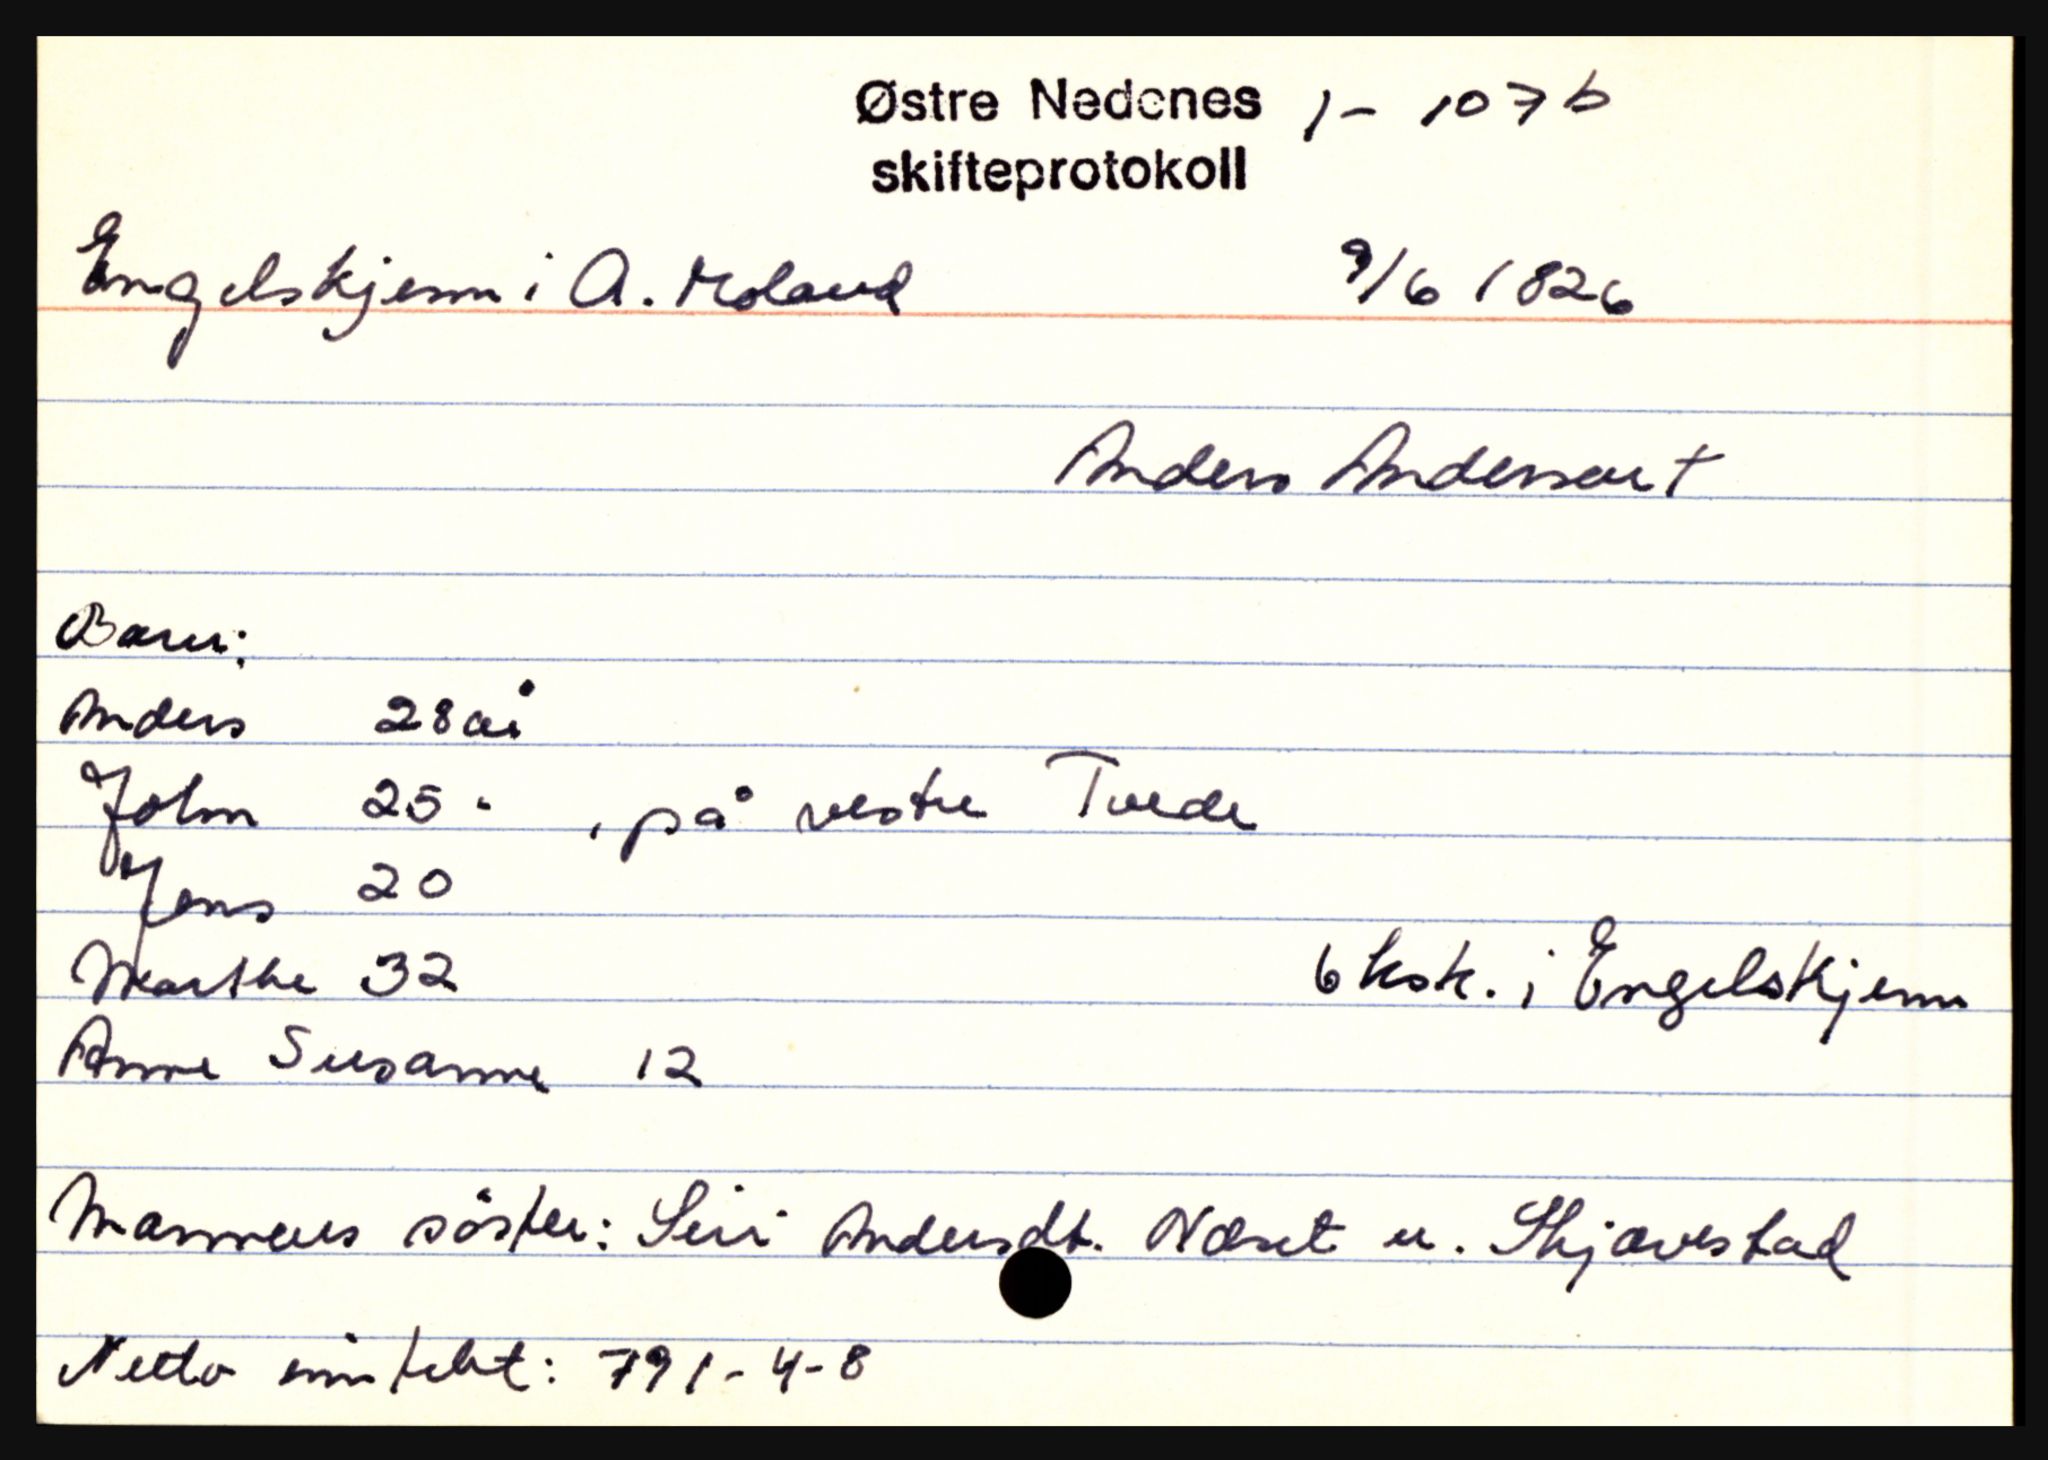 Østre Nedenes 1-107b
skifteprotokoll
Engelskjenn i A. Moland 9/6 1826
Anders Anderssen †
Barn:
Anders 28 år
John 25 " , på vestre Tvede
Jens 20
Marthe 32 6 ksk. i Engelskjenn
Anne Susanne 12
Mannens söster: Siri Andersdt. Næset u. Skjævestad
Netto inntekt: 791-4-8